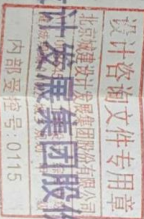 设计咨询文件专用章
北京城建设计发展集团股份有限公司
计发展集团股份
内部受控号：0115